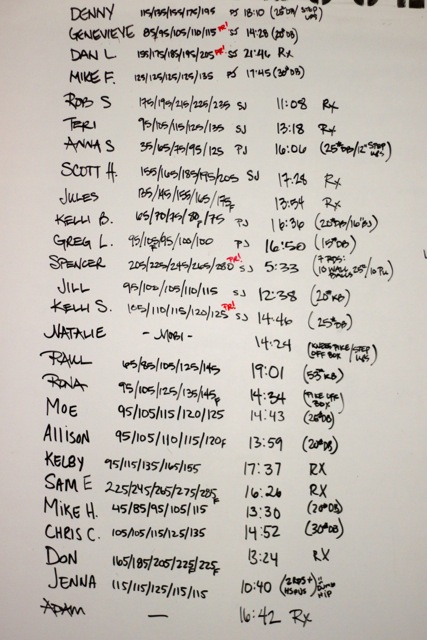 DENNY 115/135/155/175/195 SJ 18:10 (25#DB/STEP UPS)
GENEVIEVE 85/95/105/110/115 PR! SJ 14:28 (20#DB)
DAN L 155/175/185/195/205 PR! SJ 21:46 RX
MIKE F. 125/125/125/125/135 PJ 17:45 (30#DB)
ROB S 175/195/215/225/235 SJ 11:08 RX
TERI 95/105/115/125/135 SJ 13:18 RX
ANNA S 35/65/75/95/125 PJ 16:06 (25#DB/12" STEP UPS)
SCOTT H. 155/165/185/195/205 SJ 17:28 RX
JULES 135/145/155/165/175F 13:54 RX
KELLI B. 65/70/75/80F/75 PJ 16:36 (20#DB/16"BJ)
GREG L. 95/105/95/100/100 PJ 16:50 (15#DB)
SPENCER 205/225/245/265/280 PR! SJ 5:33 (7 RDS: 10 WALL BALLS 25#/10 PU)
JILL 95/100/105/110/115 SJ 12:38 (20#KB)
KELLI S. 105/110/115/120/125 PR! SJ 14:46 (25#DB)
NATALIE - MOBI - 14:24 (KNEES STEP UPS OFF BOX)
RAUL 65/85/105/125/145 19:01 (53#KB)
RONA 95/105/125/135/145F 14:34 BOX
MOE 95/105/115/120/125 14:43 (25#DB)
ALLISON 95/105/110/115/120F 13:59 (20#DB)
KELBY 95/115/135/165/155 17:37 RX
SAM E 225/245/265/275/285F 16:26 RX
MIKE H. 45/85/95/105/115 13:30 (20#DB)
CHRIS C. 105/105/115/125/135 14:52 (30#DB)
DON 165/185/205/225/225F 13:24 RX
JENNA 115/115/125/115/115 10:40 (2RDS+ HSPUS) HIP
ADAM — 16:42 RX